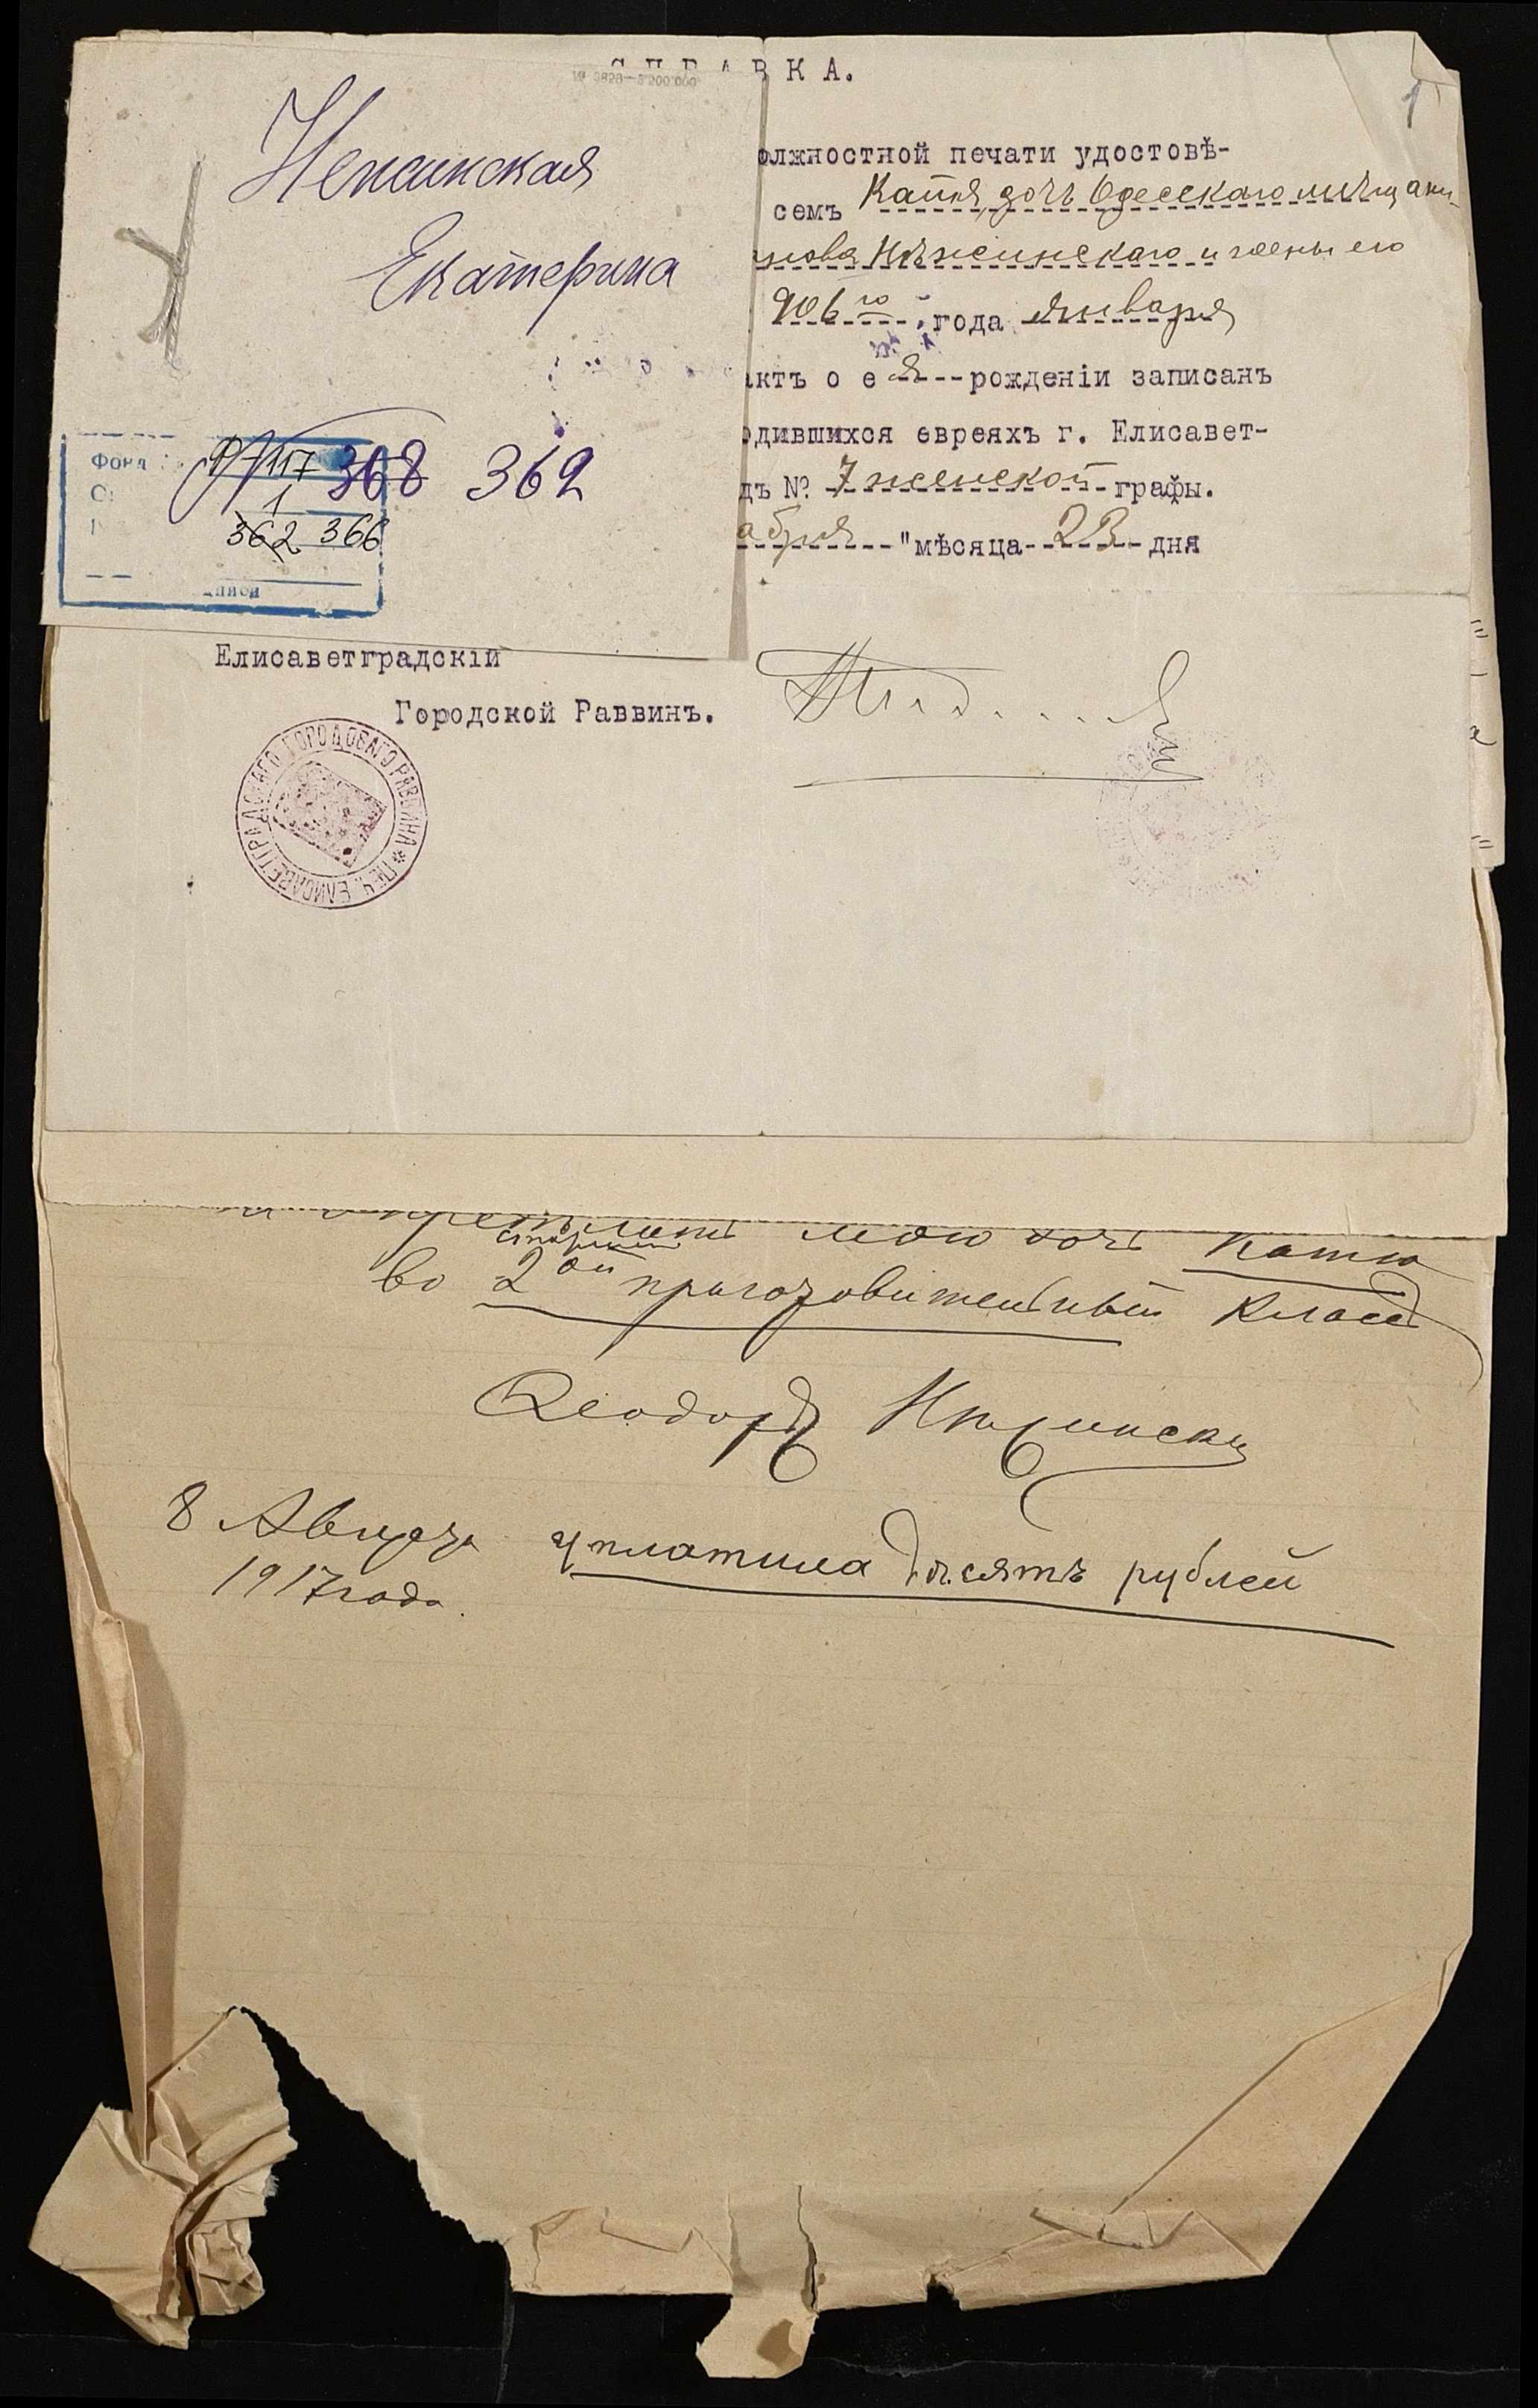 СПРАВКА.
№ 3828—3.200.000
1
Нежинская
Екатерина
Фонд Ф/117 368 369
1
362 366
олжностной печати удостовѣ-
семъ Катя, дочь Одесскаго мѣщани-
Нѣжинскаго и жены его
906го года Января
актъ о ея рожденіи записанъ
одившихся евреяхъ г. Елисавет-
дъ № 7 женской графы.
абря "мѣсяца 23 дня
Елисаветградскій
Городской Раввинъ.
ПЕЧ. ЕЛИСАВЕТГРАДСКАГО ГОРОДОВАГО РАВВИНА
мою дочь Катю
старшій
во 2ой приготовительный классъ
Ѳеодоръ Нѣжински
8 Августа
1917 года.
уплатила десять рублей